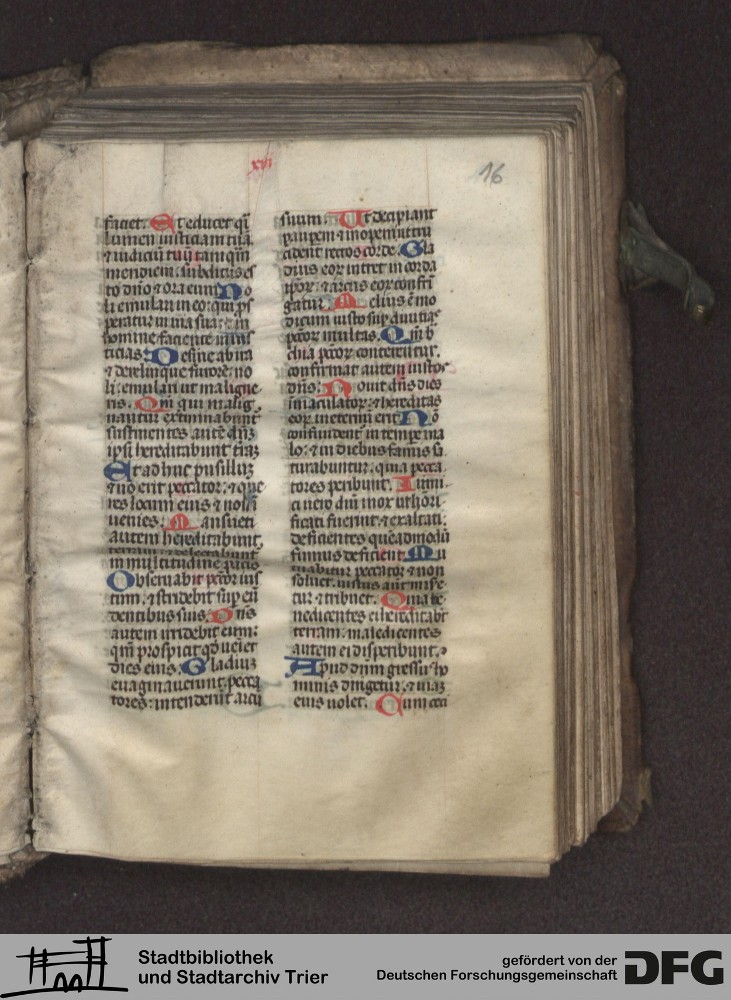 xvi
16
faciet. Et educet q̄i
lumen iusticiam tuā
⁊ iudiciū tuū tamq̄m
meridiem: subditus es
to dño ⁊ ora eum No
li emulari in eo: qui ꝓs
peratur in uia sua: in
homine faciente inius
ticias. Desine ab ira
⁊ derelinque furorē: no
li emulari ut maligne
ris. Qm̄ qui malig
nantur exterminabūt̄
sustinentes autē dn̄m
ipsi hereditabunt t̄rā
Et adhuc pusillum
⁊ nō erit peccator: ⁊ que
res locum eius ⁊ non i
uenies. Mansueti
autem hereditabunt
terram: ⁊ delectabunt̄
in multitudine pacis
Obseruabit pc̄cor ius
tum: ⁊ stridebit sup̄ eū
dentibus suis. Dn̄s
autem irridebit eum:
qm̄ prospicit qd̄ ueiet
dies eius. Gladium
euaginauerunt pecca
tores: intenderūt arcū
suum. Ut decipiant
pauperem ⁊ inopem: ut tru
cident rectos corde. Gla
dius eoꝝ intret in corda
ipsoꝝ: ⁊ arcus eoꝝ confri
gatur. Melius ē mo
dicum iusto sup̄ diuitias
pc̄coꝝ multas. Qm̄ b
chia pc̄coꝝ conterentur:
confirmat autem iustos
dn̄s. Nouit dn̄s dies
īmaculatoꝝ: ⁊ hereditas
eoꝝ in eternū erit Nō
confundent̄ in tempe ma
lo: ⁊ in diebus famis sa
turabuntur: quia pecca
tores peribunt. Inimi
ci uero dn̄i mox ut hōri
ficati fuerint ⁊ exaltati:
deficientes quēadmodū
fumus deficient. Mu
tuabitur peccator ⁊ non
soluet: iustus autē mise
tur ⁊ tribuet. Quia be
nedicentes ei hereditabt̄
terram: maledicentes
autem ei disperibunt.
Apud dn̄m gressus ho
minis dirigetur: ⁊ uiam
eius uolet. Cum ceci
Stadtbibliothek
und Stadtarchiv Trier
gefördert von der
Deutschen Forschungsgemeinschaft
DFG